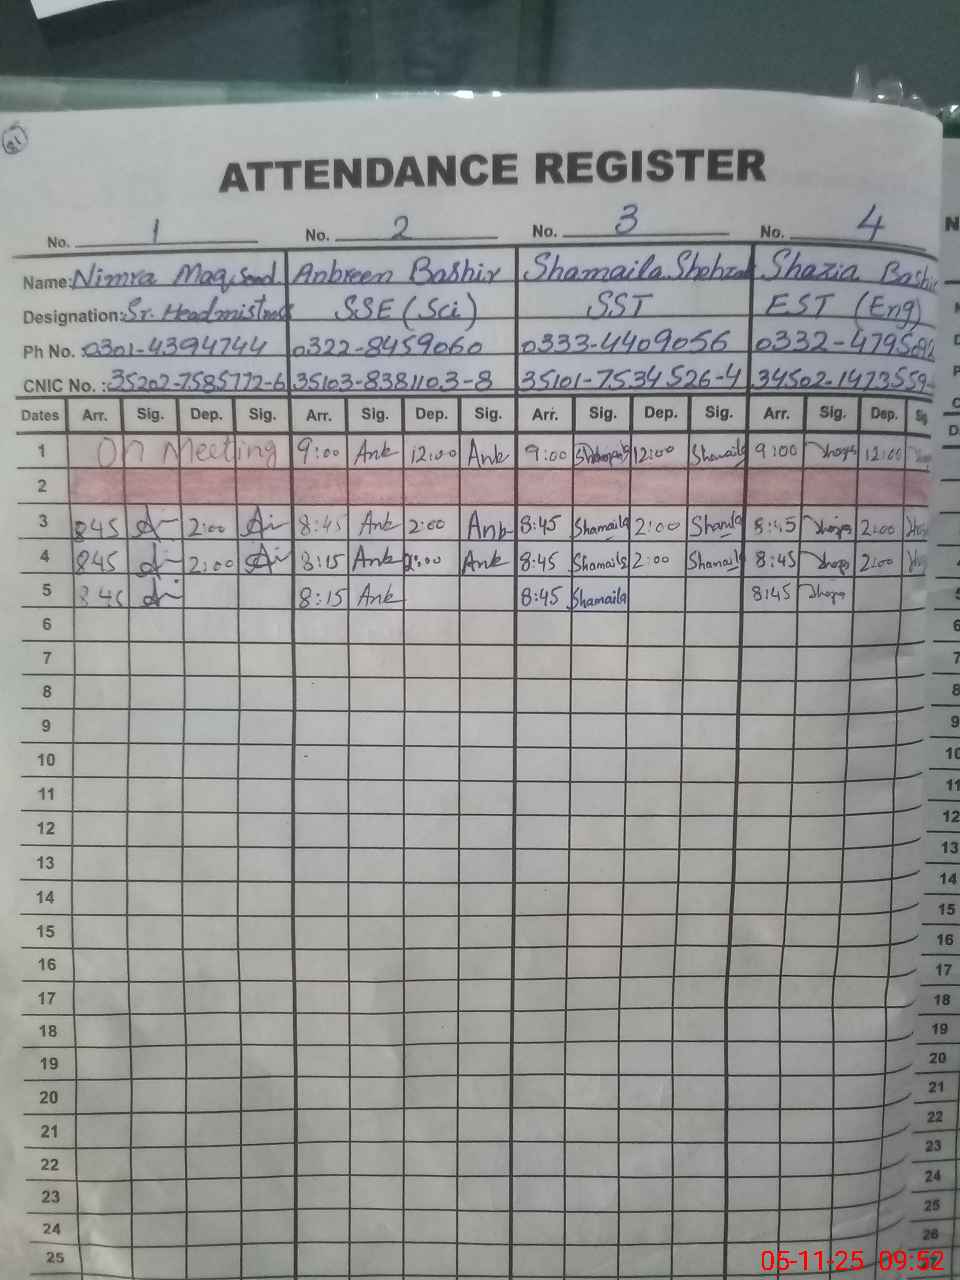 81
ATTENDANCE REGISTER
No. 1 No. 2 No. 3 No. 4
Name: Nimra Maqsood Anbreen Bashir Shamaila Shehzad Shazia Bashir
Designation: Sr. Headmistress SSE (Sci) SST EST (Eng)
Ph No. : 0301-4394744 0322-8459060 0333-4409056 0332-479
CNIC No. : 35202-7585772-6 35103-8381103-8 35101-7534526-4 34502-1473559-
Dates Arr. Sig. Dep. Sig. Arr. Sig. Dep. Sig. Arr. Sig. Dep. Sig. Arr. Sig. Dep. Sig
1 On Meeting 9:00 Ank 12:00 Ank 9:00 12:00 Shamaila 9:00 12:00
2
3 845 2:00 8:45 Ank 2:00 Anb 8:45 Shamaila 2:00 Shamaila 8:45 2:00
4 845 2:00 8:15 Ank 2:00 Ank 8:45 Shamaila 2:00 Shamaila 8:45 2:00
5 845 8:15 Ank 8:45 Shamaila 8:45
6
7
8
9
10
11
12
13
14
15
16
17
18
19
20
21
22
23
24
25
N
D
P
C
D
6
7
8
9
10
11
12
13
14
15
16
17
18
19
20
21
22
23
24
25
26
05-11-25 09:52